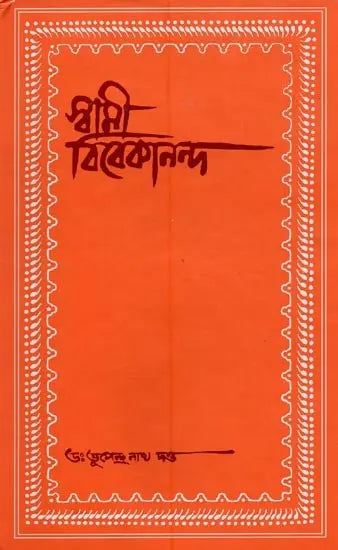 স্বামী
বিবেকানন্দ
ডঃ ভূপেন্দ্র নাথ দত্ত